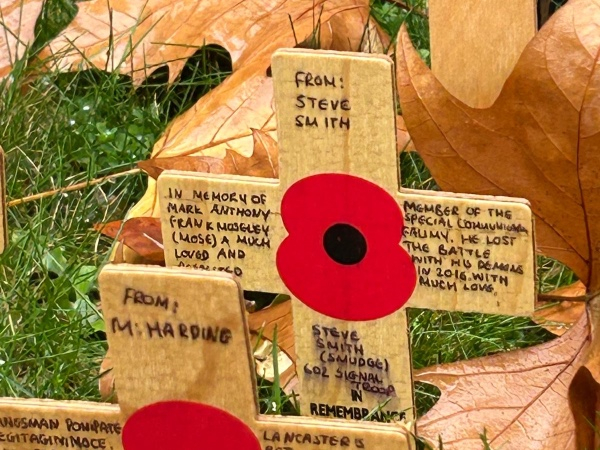 FROM:
STEVE
SMITH
IN MEMORY OF
MARK ANTHONY
FRANK MOSELEY
(MOSE) A MUCH
LOVED AND
MEMBER OF THE
SPECIAL
HE LOST
THE BATTLE
WITH HIS DEMONS
IN 2016. WITH
MUCH LOVE,
STEVE
SMITH
(SMUDGE)
602 SIGNAL
TROOP
IN
REMEMBRANCE
FROM:
M. HARDING
LANCASTER